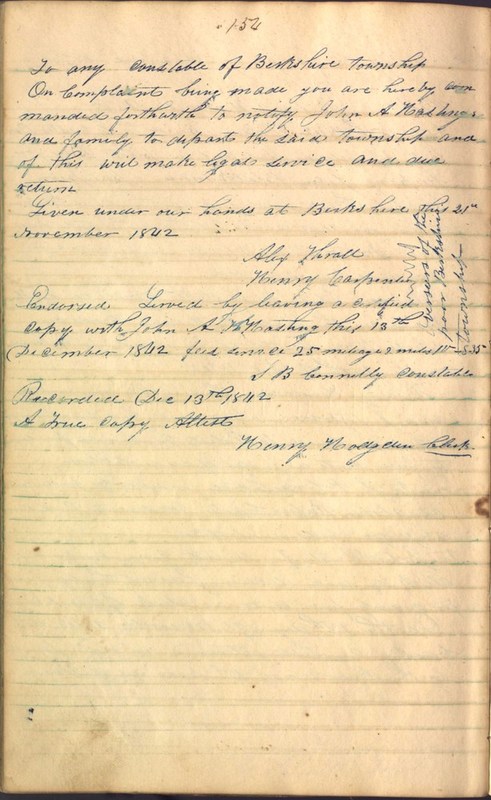 154
To any constable of Berkshire township
On Complaint being made you are hereby com
manded forthwith to notify John A Hastings
and family to depart the said township and
of this writ make legal service and due
return
Given under our hands at Berkshire this 21st
November 1842
Alex Thrall
Henry Carpenter
Overseers of the
poor Berkshire
township
Endorsed Served by leaving a certified
copy with John A Hasting this 13th
December 1842 fees service 25 mileage 2 miles 10 - 35
S B Connelly constable
Recorded Dec 13th 1842
A True Copy Attest
Henry Hodgden Clerk